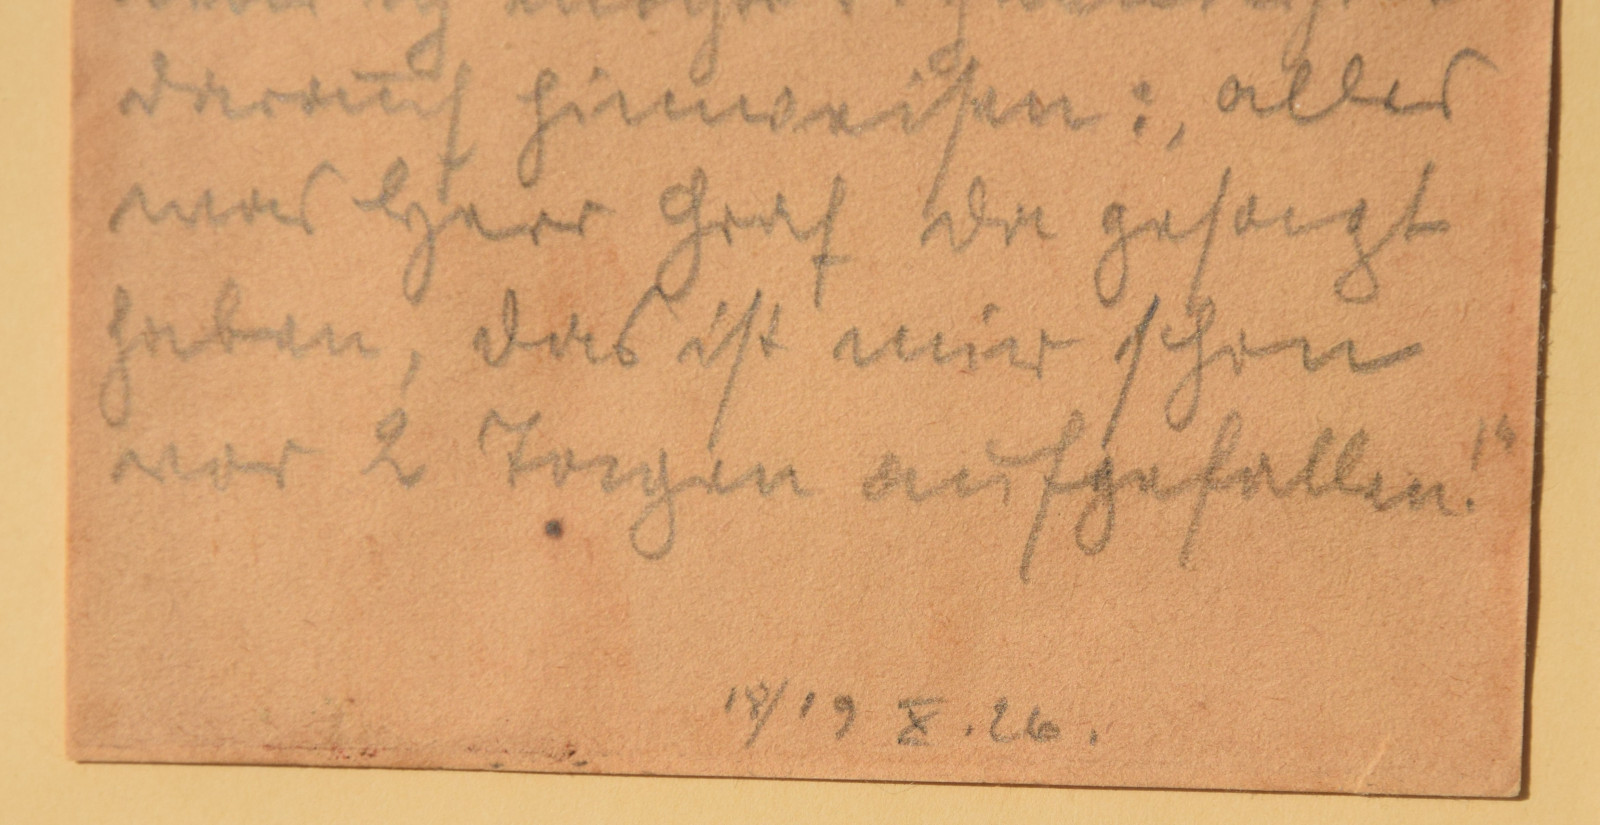 darauf hinweisen:, alles
was Herr Graf da gesagt
haben, das ist mir schon
vor 2 Tagen aufgefallen!"
18/19 X.26.